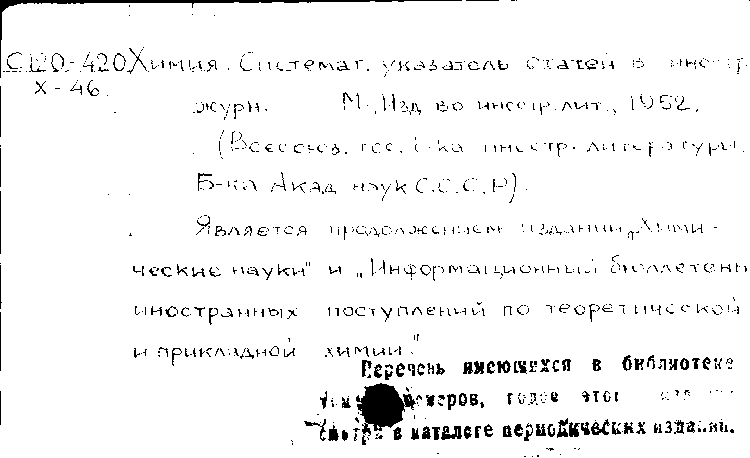 С120-420 Химия. Системат. указатель статей в иностр.
Х-46.
журн. М., Изд-во иностр. лит., 1952.
(Всесоюз. гос. б-ка иностр. литературы.
Б-ка Акад. наук С.С.С.Р).
Является продолжением изданий „Хими-
ческие науки" и „Информационный бюллетень
иностранных поступлений по теоретической
и прикладной химии."
Перечень имеющихся в библиотеке
номеров, годов этого
смотри в каталоге периодических изданий.